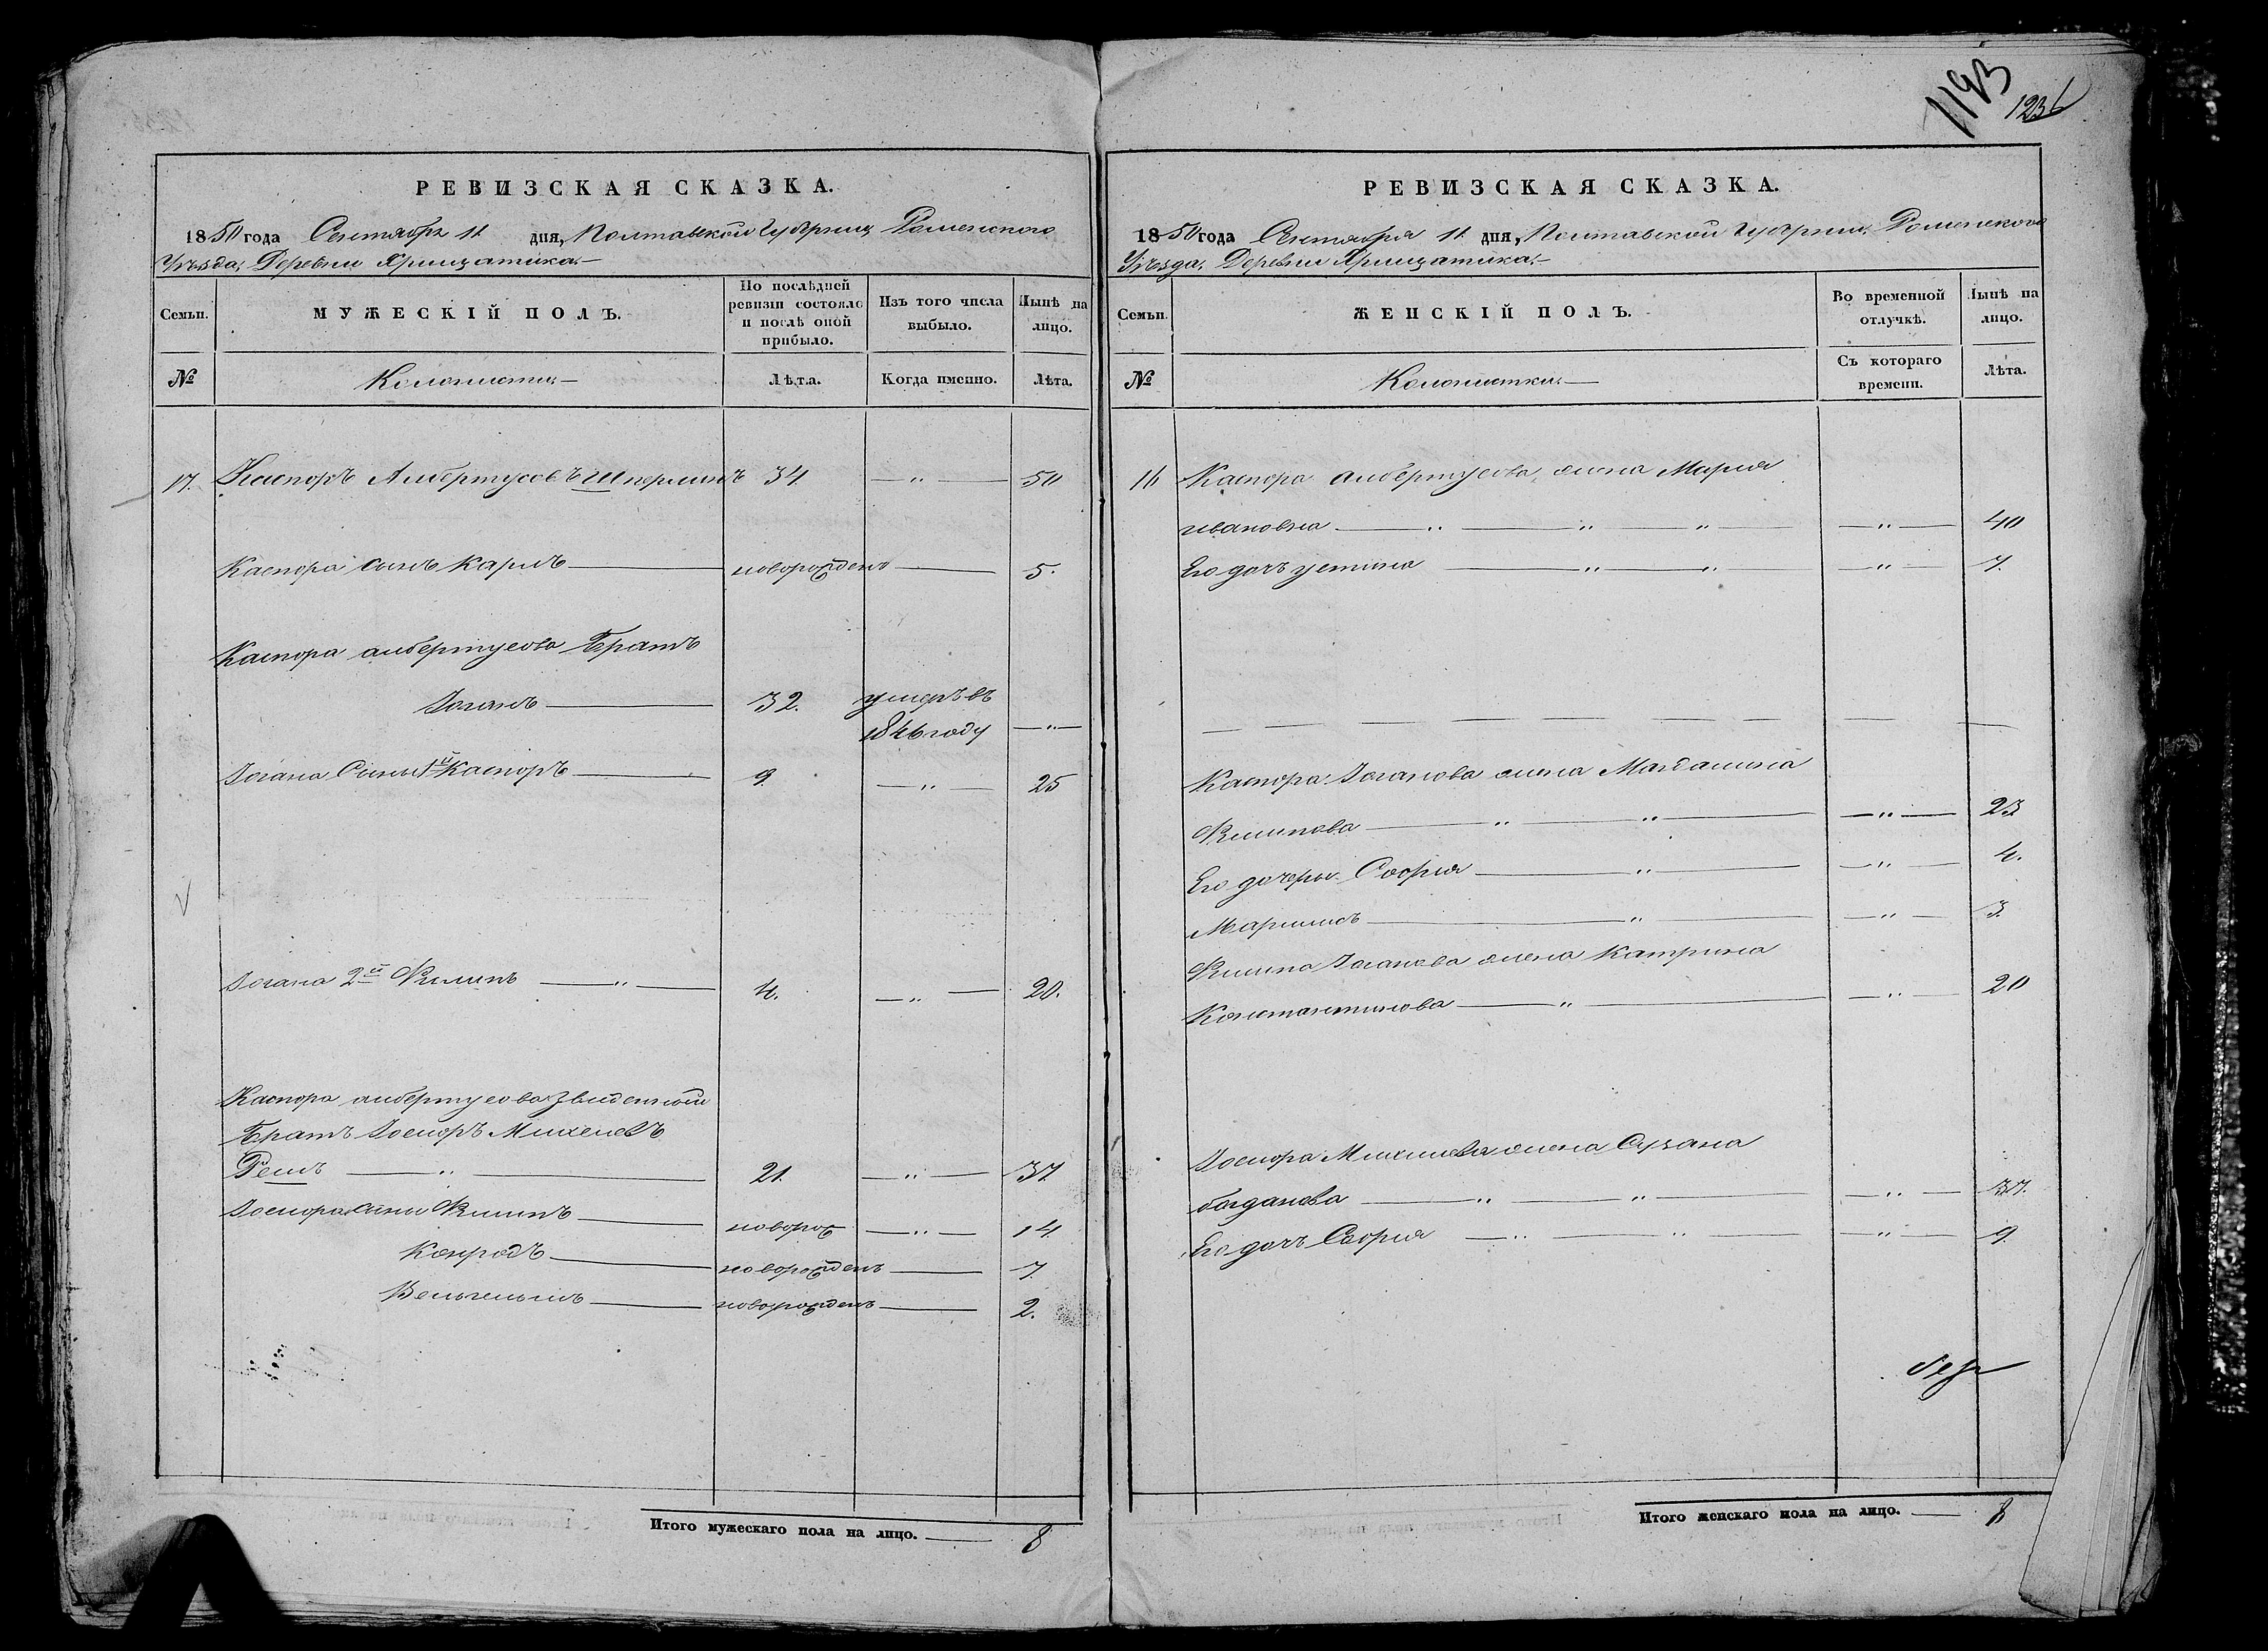 1193
1236
РЕВИЗСКАЯ СКАЗКА.
1850 года Сентября 11 дня, Полтавской Губернии Роменского
Уѣзда, Деревни
Семьи.
МУЖЕСКІЙ ПОЛЪ.
По послѣдней ревизіи состояло и послѣ оной прибыло.
Изъ того числа выбыло.
Нынѣ на лицо.
№
Колонисты —
Лѣта.
Когда именно.
Лѣта.
17. Каспоръ Албертусовъ Шперлинъ 34 — „ — 50
Каспора сынъ Карлъ — новорожденъ — 5.
Каспора албертусова Братъ
Іоганъ — 32. умеръ въ
1846 году — „ —
Іогана Сыны 1й Каспоръ — 9. — „ — 25
Іогана 2й Филипъ — „ — 4. — „ — 20.
Каспора албертусова
Братъ Михелевъ
— „ — 21. — „ — 37
сыны Филипъ — новорож — „ — 14.
Конродъ — новорожденъ — 7.
Вельгельмъ — новорожденъ — 2.
Итого мужескаго пола на лицо. — 8
РЕВИЗСКАЯ СКАЗКА.
1850 года Сентября 11 дня, Полтавской Губерніи, Роменского
Уѣзда, Деревни
Семьи.
ЖЕНСКІЙ ПОЛЪ.
Во временной отлучкѣ.
Нынѣ на лицо.
№
Колонистки —
Съ котораго времени.
Лѣта.
Каспора албертусова жена Мария
ивановна — „ — „ — „ — — „ — 40
Его дочь устина — „ — „ — — „ — 7.
Каспора Іоганова жена Магдалина
Филипова — „ — „ — — „ — 23
Его дочеры София — „ — — „ — 4.
— „ — — „ — 3.
Филипа Іоганова жена Катрина
Константинова — „ — — „ — 20
Михелева жена Сузана
богданова — „ — „ — — „ — 37.
Его дочь София — „ — „ — — „ — 9.
Итого женскаго пола на лицо. — 8